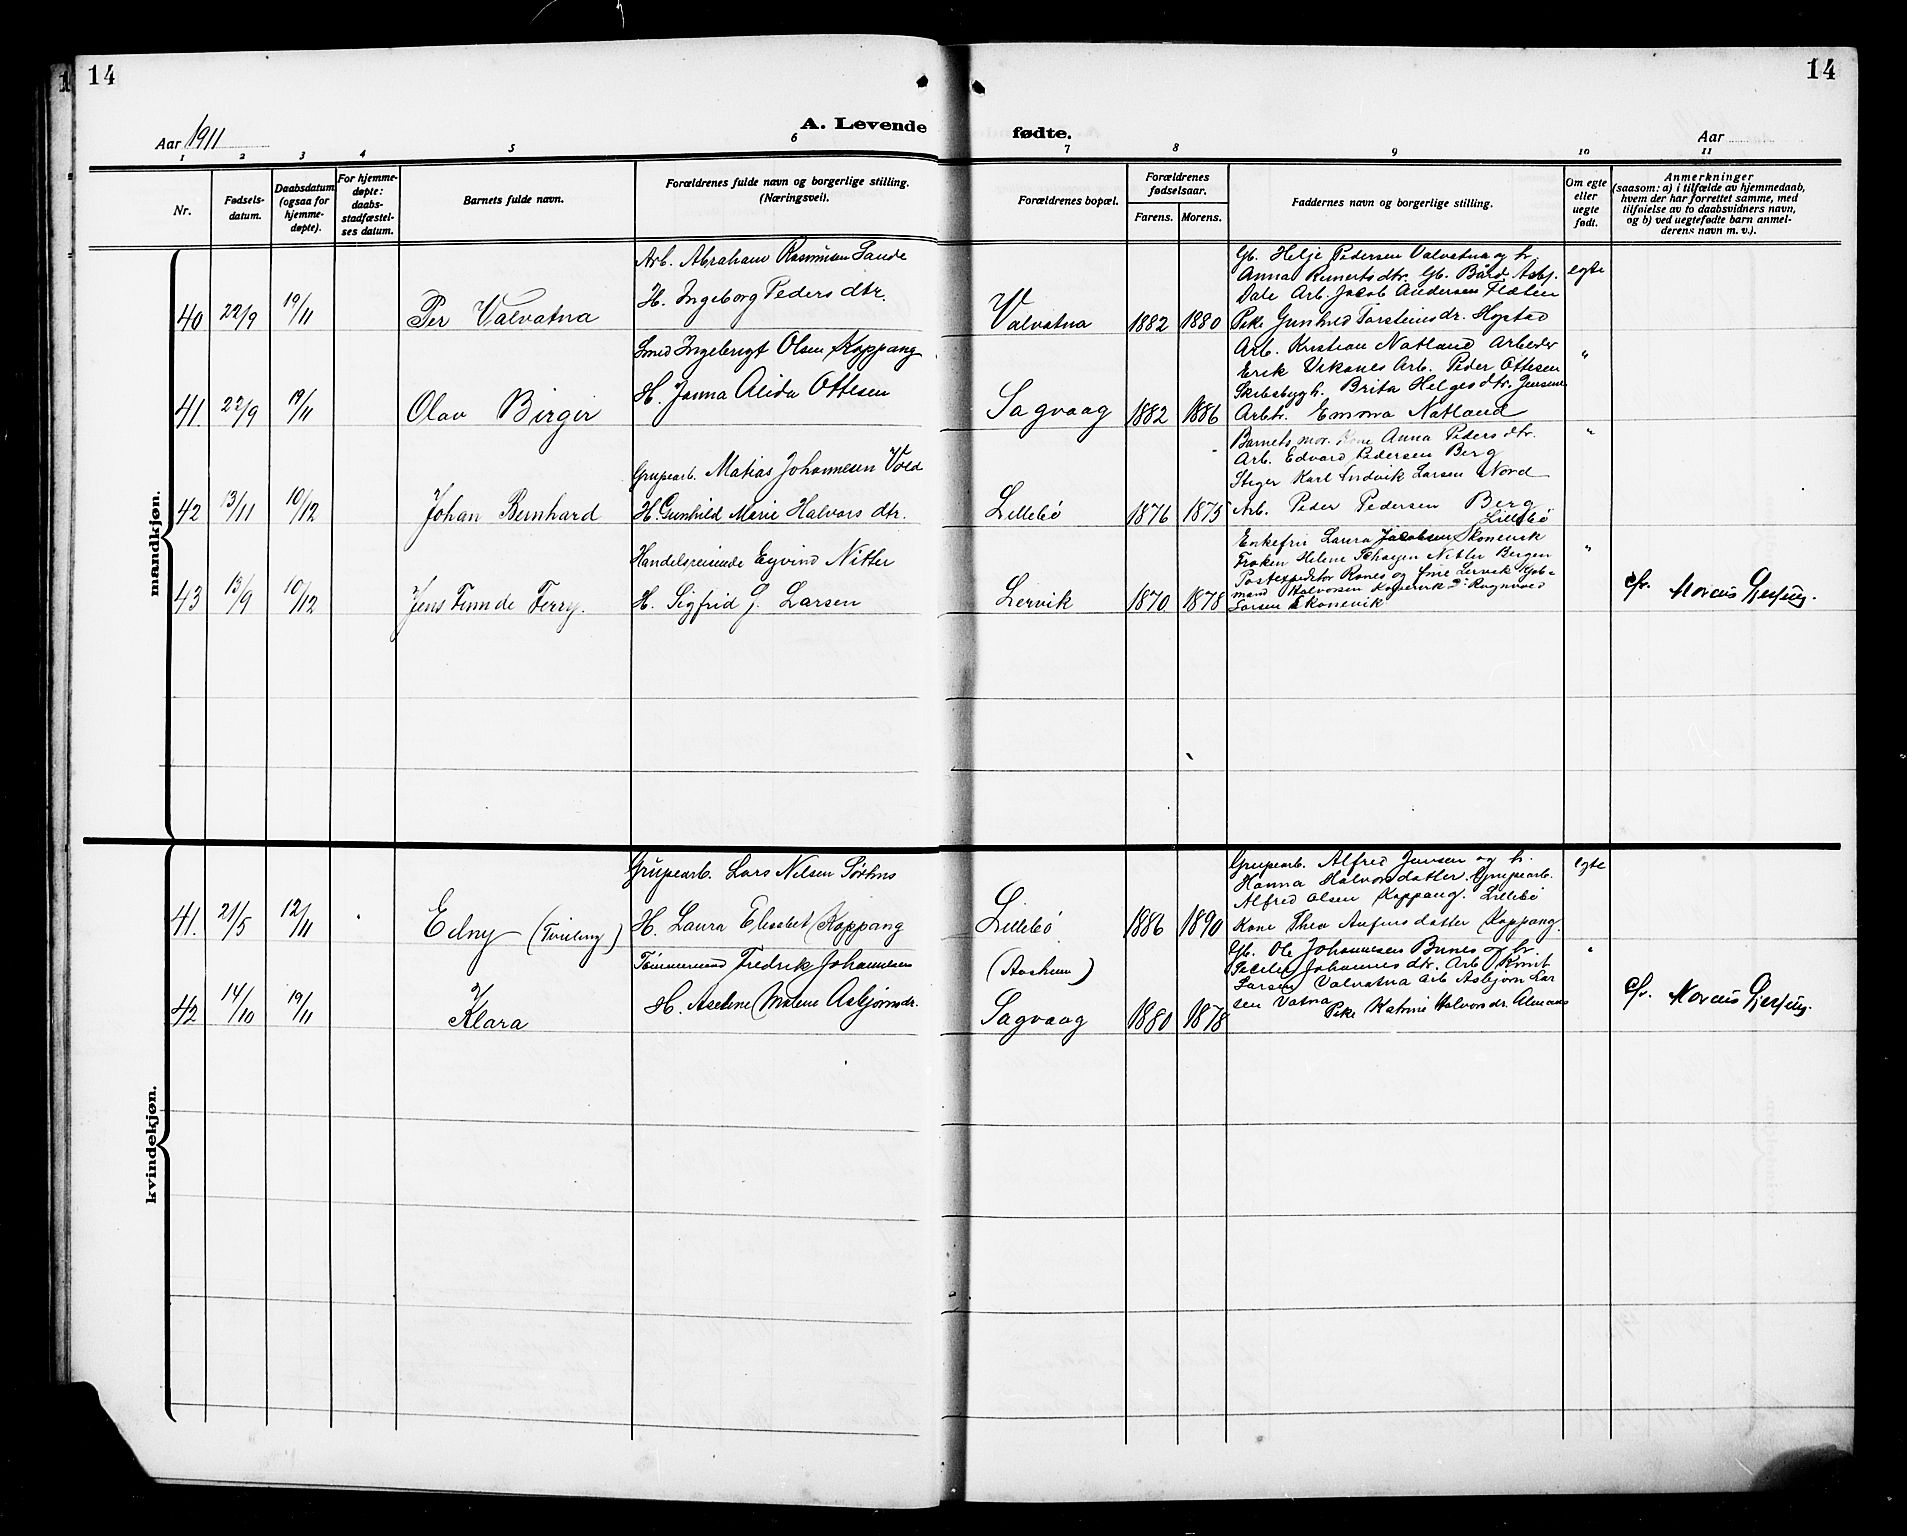 14
14
Aar 1911
A. Levende
fødte.
Aar
1 2 3 4 5 6 7 8 9 10 11
Nr.
Fødsels-
datum.
Daabsdatum
(ogsaa for
hjemme-
døpte).
For hjemme-
døpte:
daabs-
stadfæstel-
ses datum.
Barnets fulde navn.
Forældrenes fulde navn og borgerlige stilling.
(Næringsvei).
Forældrenes bopæl.
Forældrenes
fødselsaar.
Farens. Morens.
Faddernes navn og borgerlige stilling.
Om egte
eller
uegte
født.
Anmerkninger
(saasom: a) i tilfælde av hjemmedaab,
hvem der har forrettet samme, med
tilføielse av to daabsvidners navn,
og b) ved uegtefødte barn anmel-
derens navn m. v.).
mandkjøn.
40 22/9 19/11 Per Valvatna
Arb. Abraham Rasmussen Sande
H. Ingeborg Peders dtr.
Valvatna 1882 1880
Gb. Helje Pedersen Valvatna og h.
Anna Runerts dtr. Gb. Bård Asbj.
Dale Arb. Jacob Andersen Flaten
Pike Gunhild Torsteins dr. Hystad
egte
41. 22/9 19/11 Olav Birger
Smed Ingebrigt Olsen Koppang
H. Janna Alida Ottesen
Sagvaag 1882 1886
Arb. Kristian Natland Arbeder
Erik Vikanes Arb. Peder Ottesen
Skibsbyg h. Brita Helges dtr. Jensen
Arbtr. Emma Natland
"
42 13/11 10/12 Johan Bernhard
Grupearb. Matias Johannesen Vold
H. Gunhild Marie Halvors dtr.
Lillebö 1876 1875
Barnets mor. Kone Anna Peders dtr.
Arb. Edvard Pedersen Berg
Stiger Karl Ludvik Larsen Nord
Arb. Peder Pedersen Berg
Lillebö
"
43 13/9 10/12 Jens Terry.
Handelsreisende Eyvind Nitter
H. Sigfrid G. Larsen
Lervik 1870. 1878
Enkefru Laura Jacobsen Skonevik
Frøken Helene Nitter Bergen
Postexpeditør Rones og frue Lervik Kjøb-
mand Halvorsen Kopervik Rognvald
Larsen Skonevik
"
cfr. Marcus Gjessing.
kvindekjøn.
41. 21/5 12/11 Edny (Tvilling)
Grupearb. Lars Nilsen Sørhus
H. Laura Elisabet Koppang
Lillebö 1886 1890
Grupearb. Alfred Jensen og h.
Hanna Halvorsdatter. Grupearb.
Alfred Olsen Koppang. Lillebö
Kone Thea Anfinsdatter Koppang.
egte
42 14/10 19/11 Klara
Tömmermand Fredrik Johannesen
H. Malene Asbjørnsdr.
(Aasheim)
Sagvaag 1880 1878
Gb. Ole Johannesen Bunes og h.
Secilie Johannes dtr. Arb. Knut
Larsen Valvatna Arb Asbjørn Lar
sen Vatna Pike Katrine Halvorsdr. Almaas
"
cfr. Marcus Gjessing.